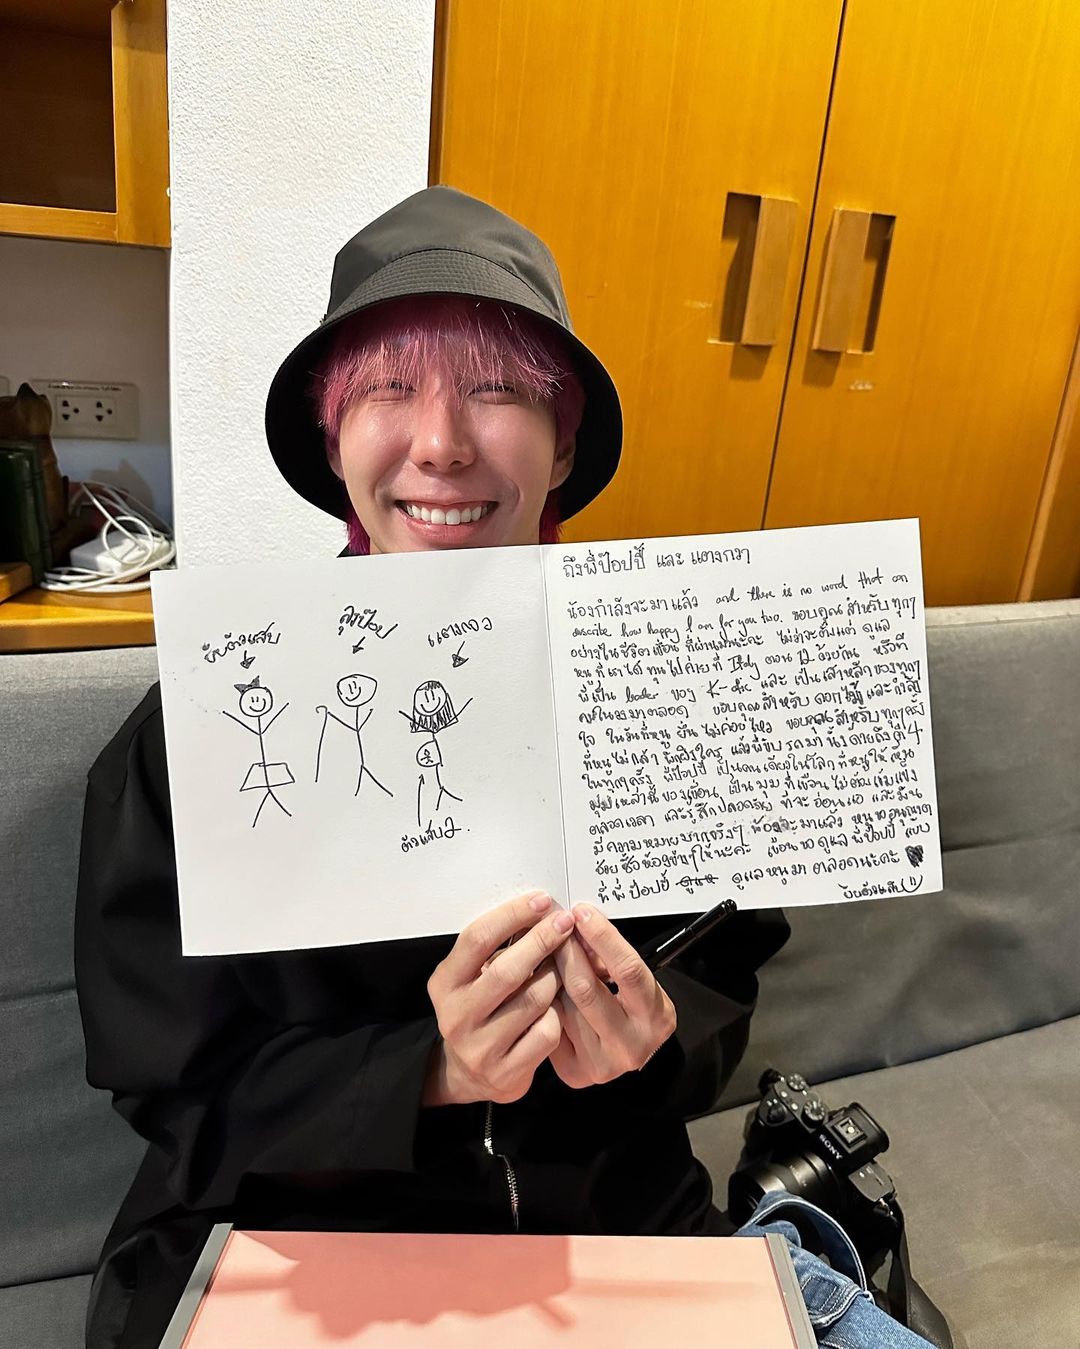 ลุงป๊อป
แตงกวา
ถึงพี่ป๊อปปี้ และ แตงกวา
น้องกำลังจะมาแล้ว and there is no word that can
describe how happy I am for you two. ขอบคุณสำหรับทุกๆ
อย่างในชีวิตเขื่อน ที่ผ่านมานะคะ ไม่ว่าจะตั้งแต่ ดูแล
หนู ที่เราได้ ทุนไปค่ายที่ ตอน 12 ด้วยกัน หรือที่
พี่เป็น leader ของ K-otic และ เป็นเสาหลักของทุกๆ
คนในวงมาตลอด ขอบคุณสำหรับ และกำลัง
ใจ ในวันที่หนู ยืนไม่ค่อยไหว ขอบคุณสำหรับทุกๆครั้ง
ที่หนูไม่กล้า พึ่งพิงใคร แล้วพี่ขับรถมา ถึงตี 4
ในทุกๆครั้ง พี่ป๊อปปี้ เป็นคนเดียวในโลกที่หนูให้เห็น
มุมเหล่านี้ของเขื่อน เป็นมุม ที่เขื่อนไม่ต้องเข้มแข็ง
ตลอดเวลา และรู้สึกปลอดภัย ที่จะอ่อนแอ และมัน
มีความหมายมากจริงๆ น้องจะมาแล้ว หนูขออนุญาต
ให้นะคะ เขื่อนขอดูแลพี่ป๊อปปี้ แบบ
ที่พี่ป๊อปปี้ ดูแลหนูมาตลอดนะคะ
SONY